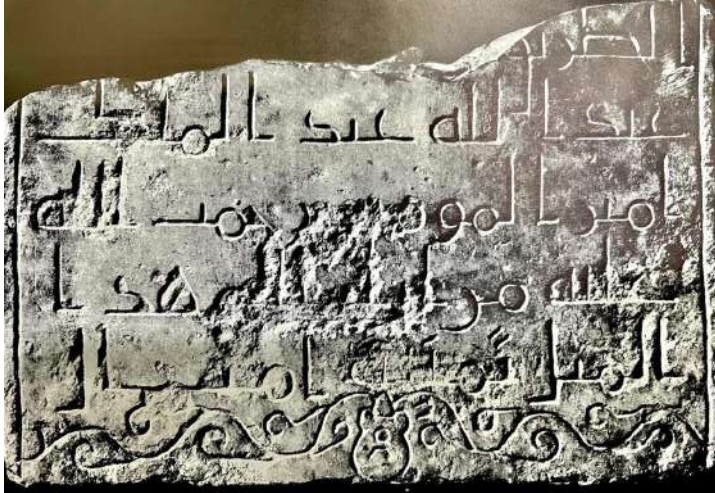 الطريق
عبد الله عبد الملك
امير المومنين رحمت الله
عليه من هذا
الميل ثمنيه اميال